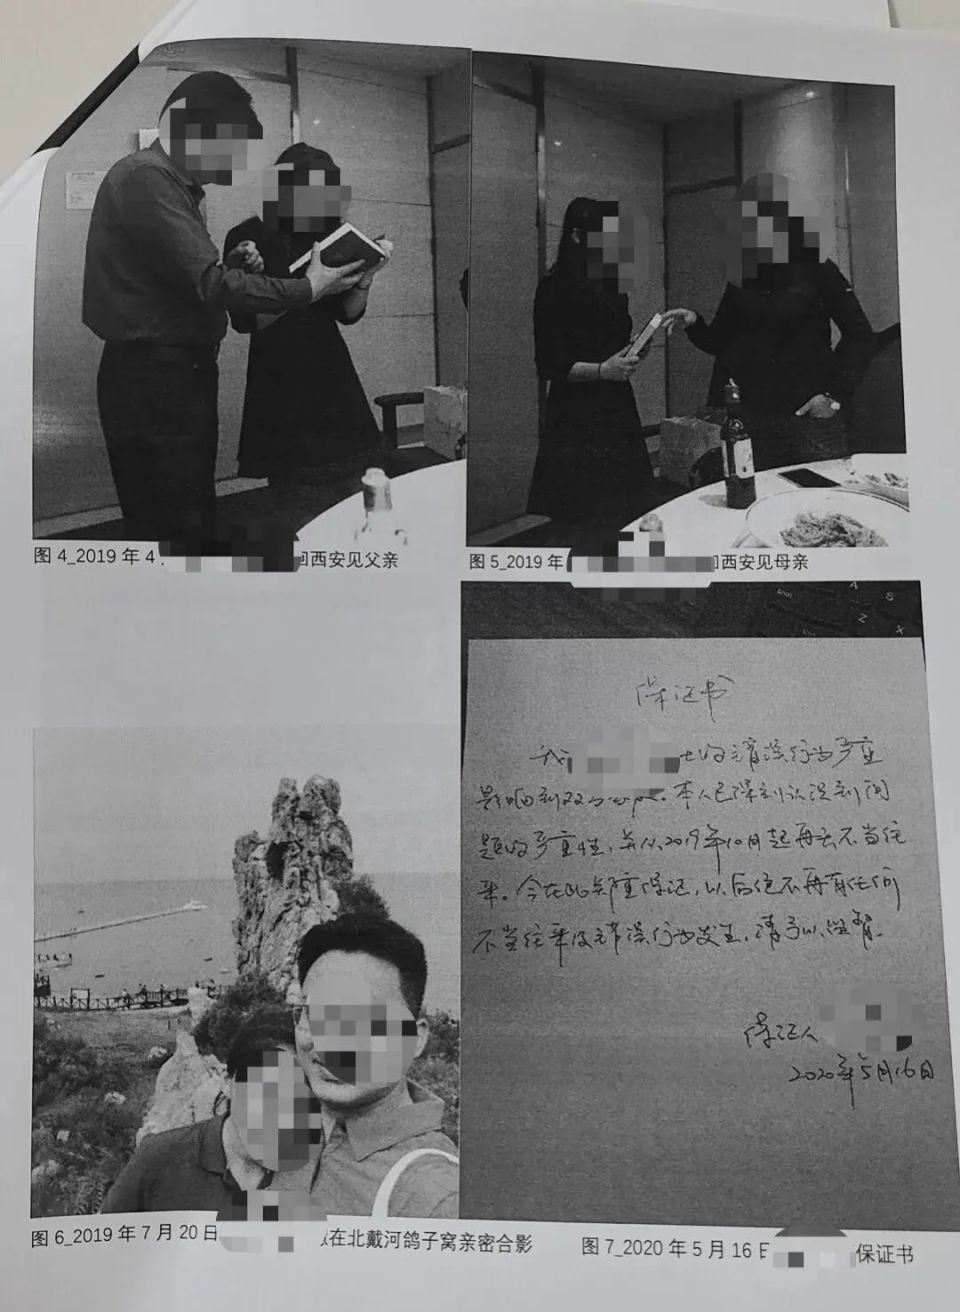 图 4_2019 年 4
回西安见父亲
图 5_2019 年
西安见母亲
A S
Z X
保证书
我
的错误行为严重
影响到双方
本人已深刻认识到问
题的严重性，并从2019年10月起再无不当往
来。今在此郑重保证，以后绝不再有任何
不当往来及错误行为发生，请予以监督。
保证人
2020年5月16日
图 6_2019 年 7 月 20 日
在北戴河鸽子窝亲密合影
图 7_2020 年 5 月 16 日
保证书